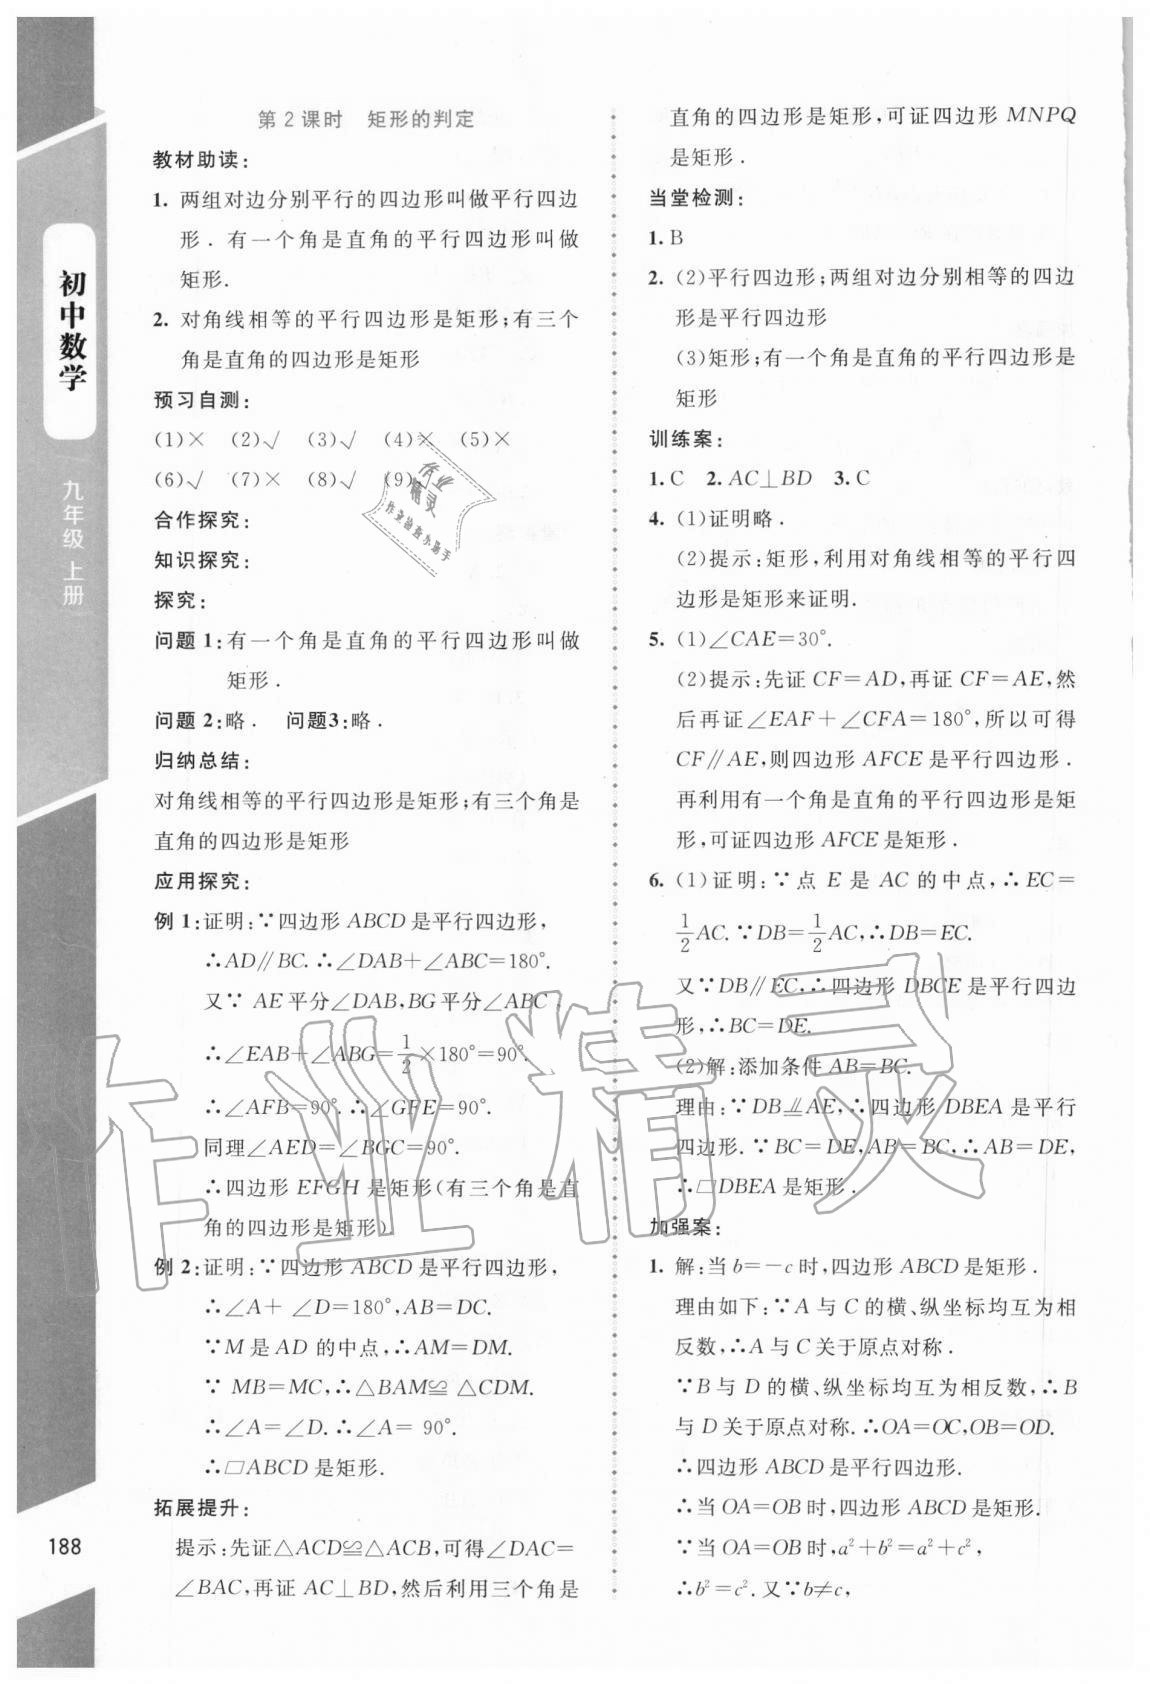 初中数学
九年级 上册
188
第2课时 矩形的判定
教材助读:
1. 两组对边分别平行的四边形叫做平行四边
形. 有一个角是直角的平行四边形叫做
矩形.
2. 对角线相等的平行四边形是矩形;有三个
角是直角的四边形是矩形
预习自测:
(1)× (2)√ (3)√ (4)× (5)×
(6)√ (7)× (8)√ (9)
合作探究:
知识探究:
探究:
问题1:有一个角是直角的平行四边形叫做
矩形.
问题2:略. 问题3:略.
归纳总结:
对角线相等的平行四边形是矩形;有三个角是
直角的四边形是矩形
应用探究:
例1:证明:∵四边形ABCD是平行四边形,
∴AD∥BC.∴∠DAB+∠ABC=180°.
又∵ AE平分∠DAB,BG平分∠ABC.
∴∠EAB+∠ABG=1/2×180°=90°.
∴∠AFB=90°.∴∠GFE=90°.
同理∠AED=∠BGC=90°.
∴四边形EFGH是矩形(有三个角是直
角的四边形是矩形)
例2:证明:∵四边形ABCD是平行四边形,
∴∠A+ ∠D=180°,AB=DC.
∵M是AD的中点,∴AM=DM.
∵ MB=MC,∴△BAM≌ △CDM.
∴∠A=∠D.∴∠A= 90°.
∴□ABCD是矩形.
拓展提升:
提示:先证△ACD≌△ACB,可得∠DAC=
∠BAC,再证AC⊥BD,然后利用三个角是
直角的四边形是矩形,可证四边形MNPQ
是矩形.
当堂检测:
1. B
2. (2)平行四边形;两组对边分别相等的四边
形是平行四边形
(3)矩形;有一个角是直角的平行四边形是
矩形
训练案:
1. C 2. AC⊥BD 3. C
4. (1)证明略.
(2)提示:矩形,利用对角线相等的平行四
边形是矩形来证明.
5. (1)∠CAE=30°.
(2)提示:先证CF=AD,再证CF=AE,然
后再证∠EAF+∠CFA=180°,所以可得
CF∥AE,则四边形AFCE是平行四边形.
再利用有一个角是直角的平行四边形是矩
形,可证四边形AFCE是矩形.
6. (1)证明:∵点E是AC的中点,∴EC=
1/2AC.∵DB=1/2AC,∴DB=EC.
又∵DB∥EC,∴四边形DBCE是平行四边
形,∴BC=DE.
(2)解:添加条件AB=BC.
理由:∵DB∥AE,∴四边形DBEA是平行
四边形.∵BC=DE,AB=BC,∴AB=DE,
∴□DBEA是矩形.
加强案:
1. 解:当b=-c时,四边形ABCD是矩形.
理由如下:∵A与C的横、纵坐标均互为相
反数,∴A与C关于原点对称.
∵B与D的横、纵坐标均互为相反数,∴B
与D关于原点对称.∴OA=OC,OB=OD.
∴四边形ABCD是平行四边形.
∴当OA=OB时,四边形ABCD是矩形.
∵当OA=OB时,a²+b²=a²+c²,
∴b²=c².又∵b≠c,
作业精灵
作业
精灵
作业检查小助手